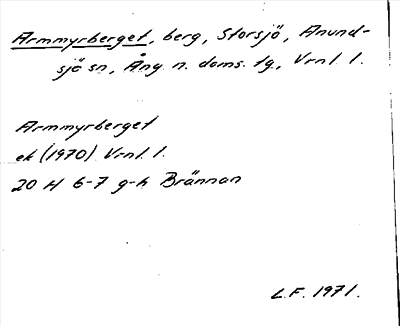 Armmyrberget, berg, Storsjö, Anund-
sjö sn, Ång. n. doms. tg, Vrnl. l.
Armmyrberget
ek (1970) Vrnl. l.
20 H 6-7 g-h Brännan
L.F. 1971.